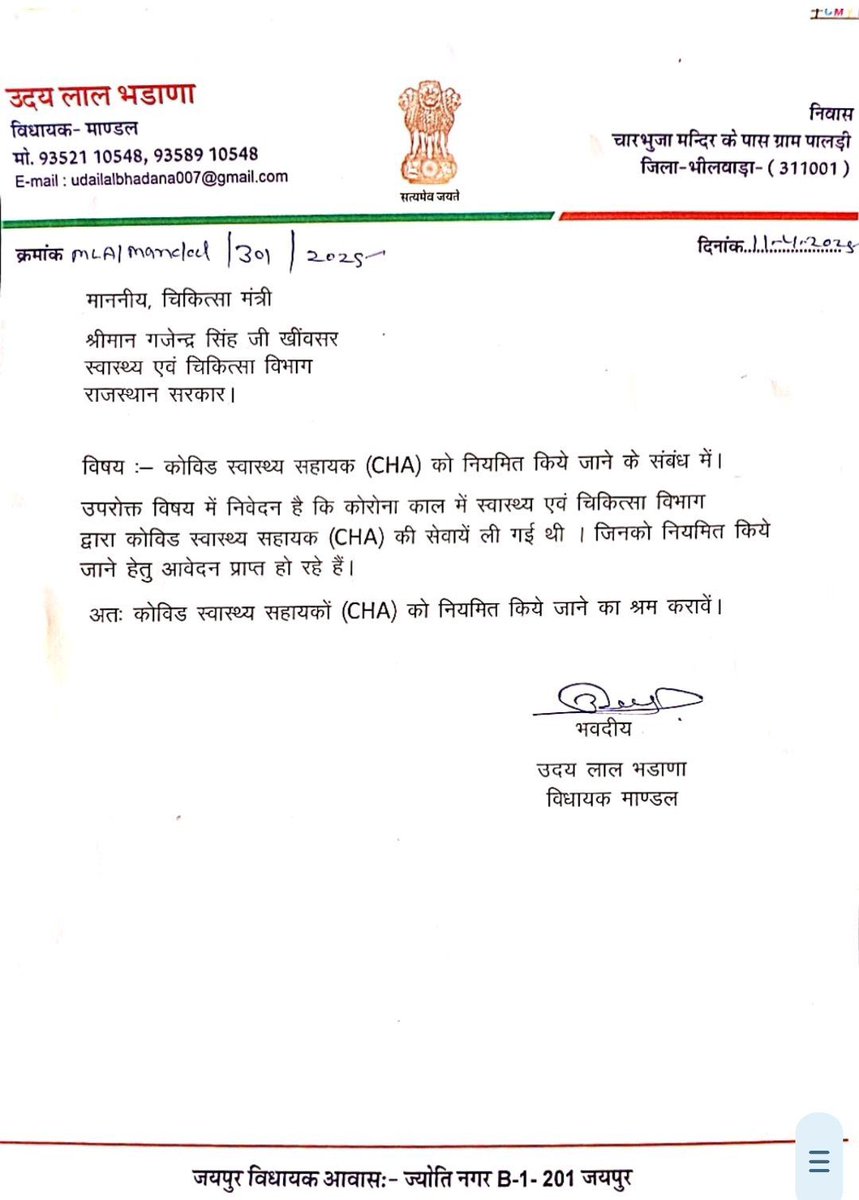 उदय लाल भडाणा
विधायक- माण्डल
मो. 93521 10548, 93589 10548
E-mail : udailalbhadana007@gmail.com
सत्यमेव जयते
निवास
चारभुजा मन्दिर के पास ग्राम पालड़ी
जिला-भीलवाड़ा- ( 311001 )
क्रमांक MLA/Mandal/301/2025
दिनांक..11-4-2025
माननीय, चिकित्सा मंत्री
श्रीमान गजेन्द्र सिंह जी खींवसर
स्वास्थ्य एवं चिकित्सा विभाग
राजस्थान सरकार।
विषय :– कोविड स्वास्थ्य सहायक (CHA) को नियमित किये जाने के संबंध में।
उपरोक्त विषय में निवेदन है कि कोरोना काल में स्वास्थ्य एवं चिकित्सा विभाग
द्वारा कोविड स्वास्थ्य सहायक (CHA) की सेवायें ली गई थी । जिनको नियमित किये
जाने हेतु आवेदन प्राप्त हो रहे हैं।
अतः कोविड स्वास्थ्य सहायकों (CHA) को नियमित किये जाने का श्रम करावें।
भवदीय
उदय लाल भडाणा
विधायक माण्डल
जयपुर विधायक आवासः- ज्योति नगर B-1- 201 जयपुर